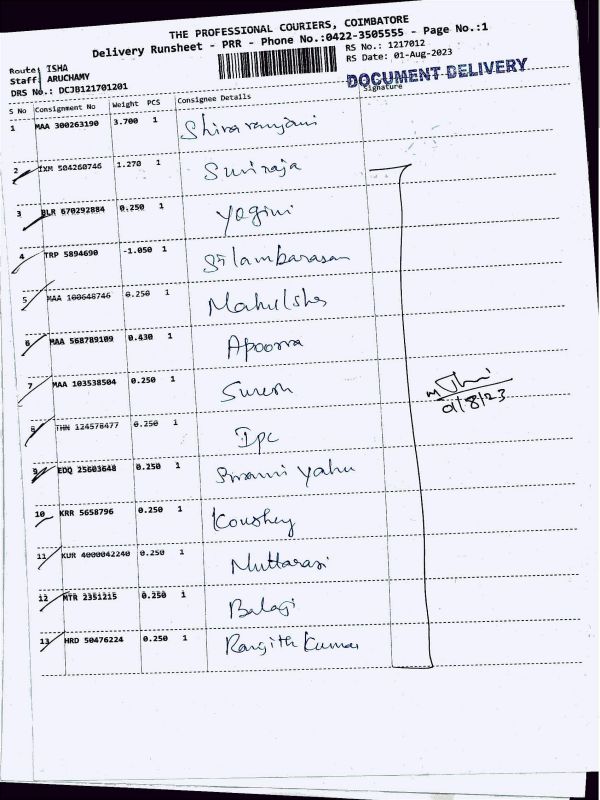 THE PROFESSIONAL COURIERS, COIMBATORE
Delivery Runsheet - PRR - Phone No.:0422-3505555 - Page No.:1
Route: ISHA
RS No.: 1217012
Staff: ARUCHAMY
RS Date: 01-Aug-2023
DRS No.: DCJB121701201
DOCUMENT DELIVERY
S No Consignment No Weight PCS Consignee Details Signature
1 MAA 300263190 3.700 1 Shivaranjani
2 IXM 504260746 1.270 1 Suniraja
3 BLR 670292884 0.250 1 Yogini
4 TRP 5894690 -1.050 1 Silambarasan
5 MAA 100648746 0.250 1
6 MAA 568789109 0.430 1 Apoorva
7 MAA 103538504 0.250 1 Suresh
8 THN 124578477 0.250 1 Ipc
9 EDQ 25603648 0.250 1 Swami Yahu
10 KRR 5658796 0.250 1 Koushey
11 KUR 4000042240 0.250 1 Muttarasi
12 MTR 2351215 0.250 1 Balagi
13 HRD 50476224 0.250 1 Rangith Kumar
01/8/23